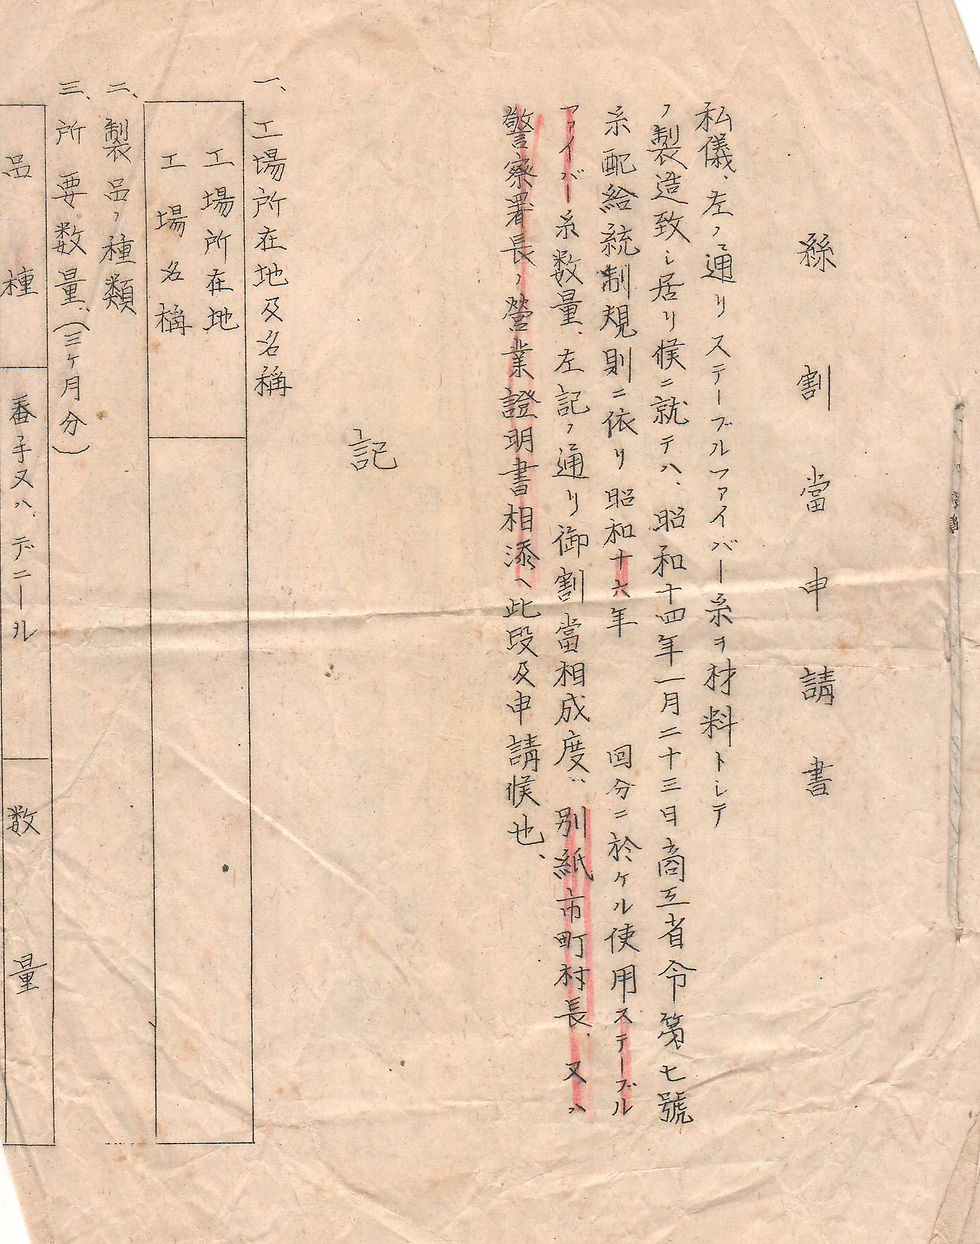 絲割當申請書
私儀、左ノ通リステープルファイバー糸ヲ材料トシテ
ノ製造致シ居リ候ニ就テハ、昭和十四年一月二十三日商工省令第七號
糸配給統制規則ニ依リ昭和十六年 回分ニ於ケル使用ステープル
ファイバー糸数量、左記ノ通リ御割當相成度、別紙市町村長、又ハ
警察署長ノ營業證明書相添ヘ此段及申請候也、
記
一、工場所在地及名稱
工場所在地
工場名稱
二、製品ノ種類
三、所要数量、(三ヶ月分)
品種 番手又ハ、デニール 数量